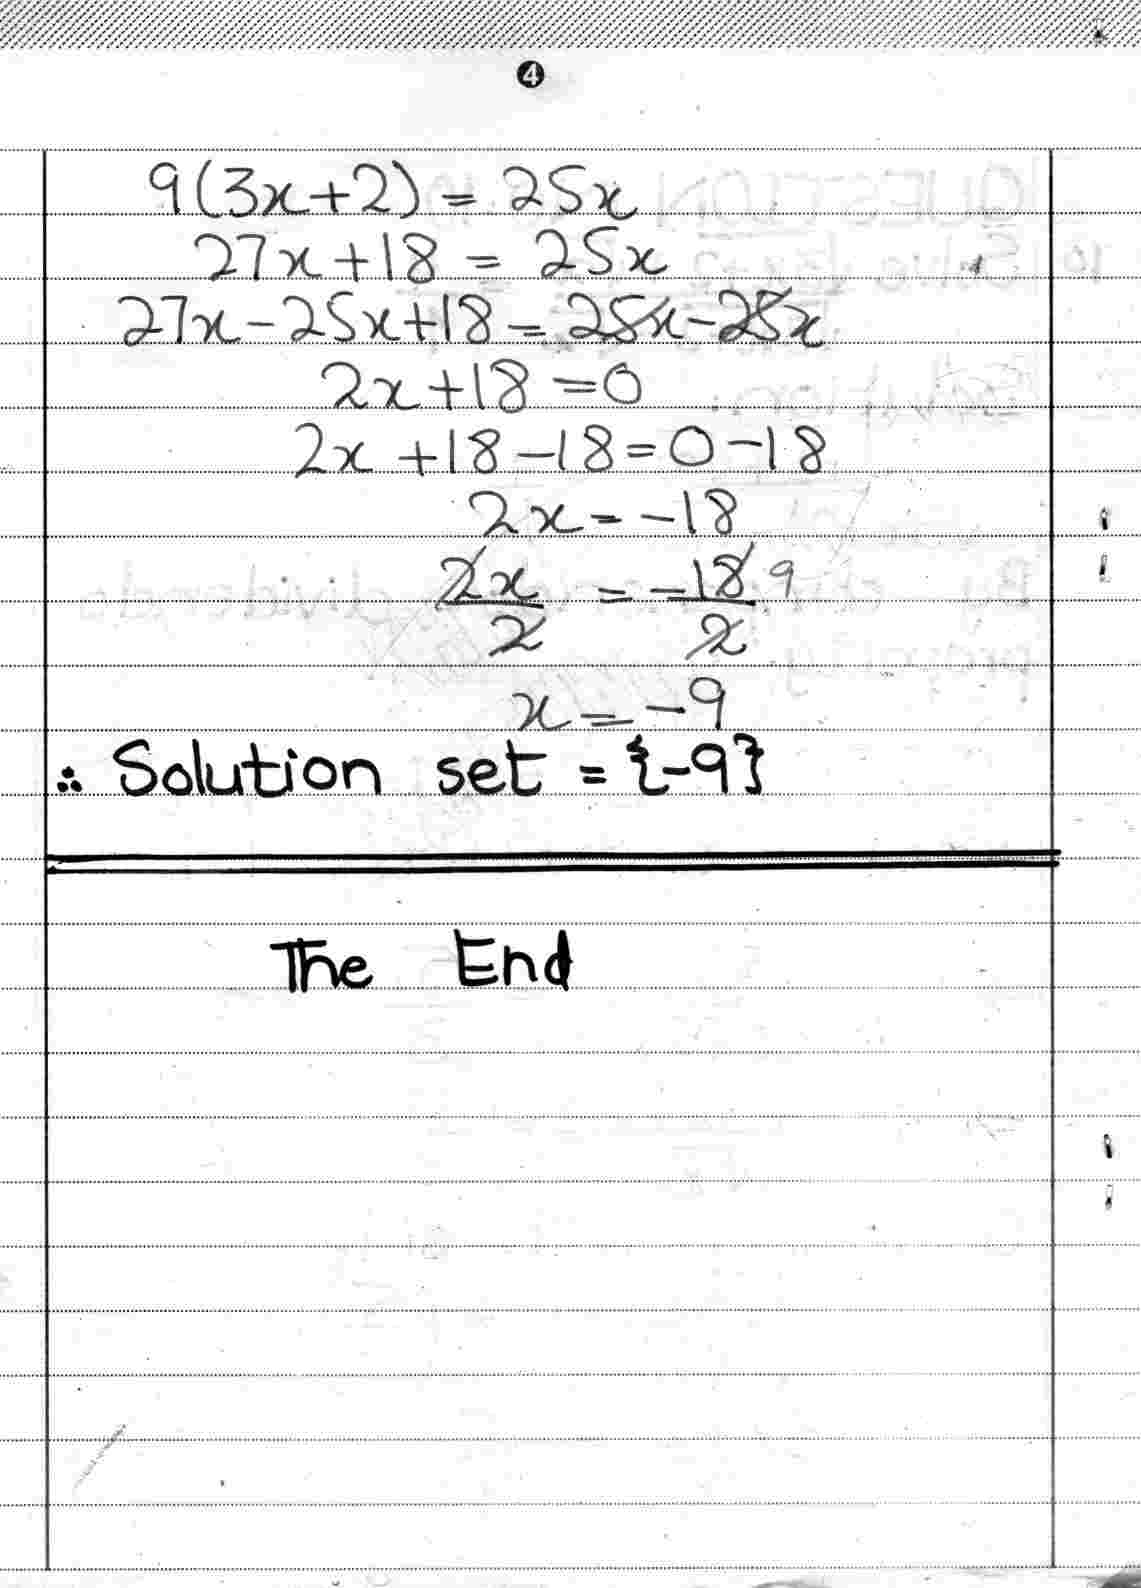 4
9(3x+2) = 25x
27x+18 = 25x
27x-25x+18 = 25x-25x
2x+18 =0
2x +18-18=0-18
2x = -18
2x/2 = -18/2 9
x = -9
∴ Solution set = {-9}
The End